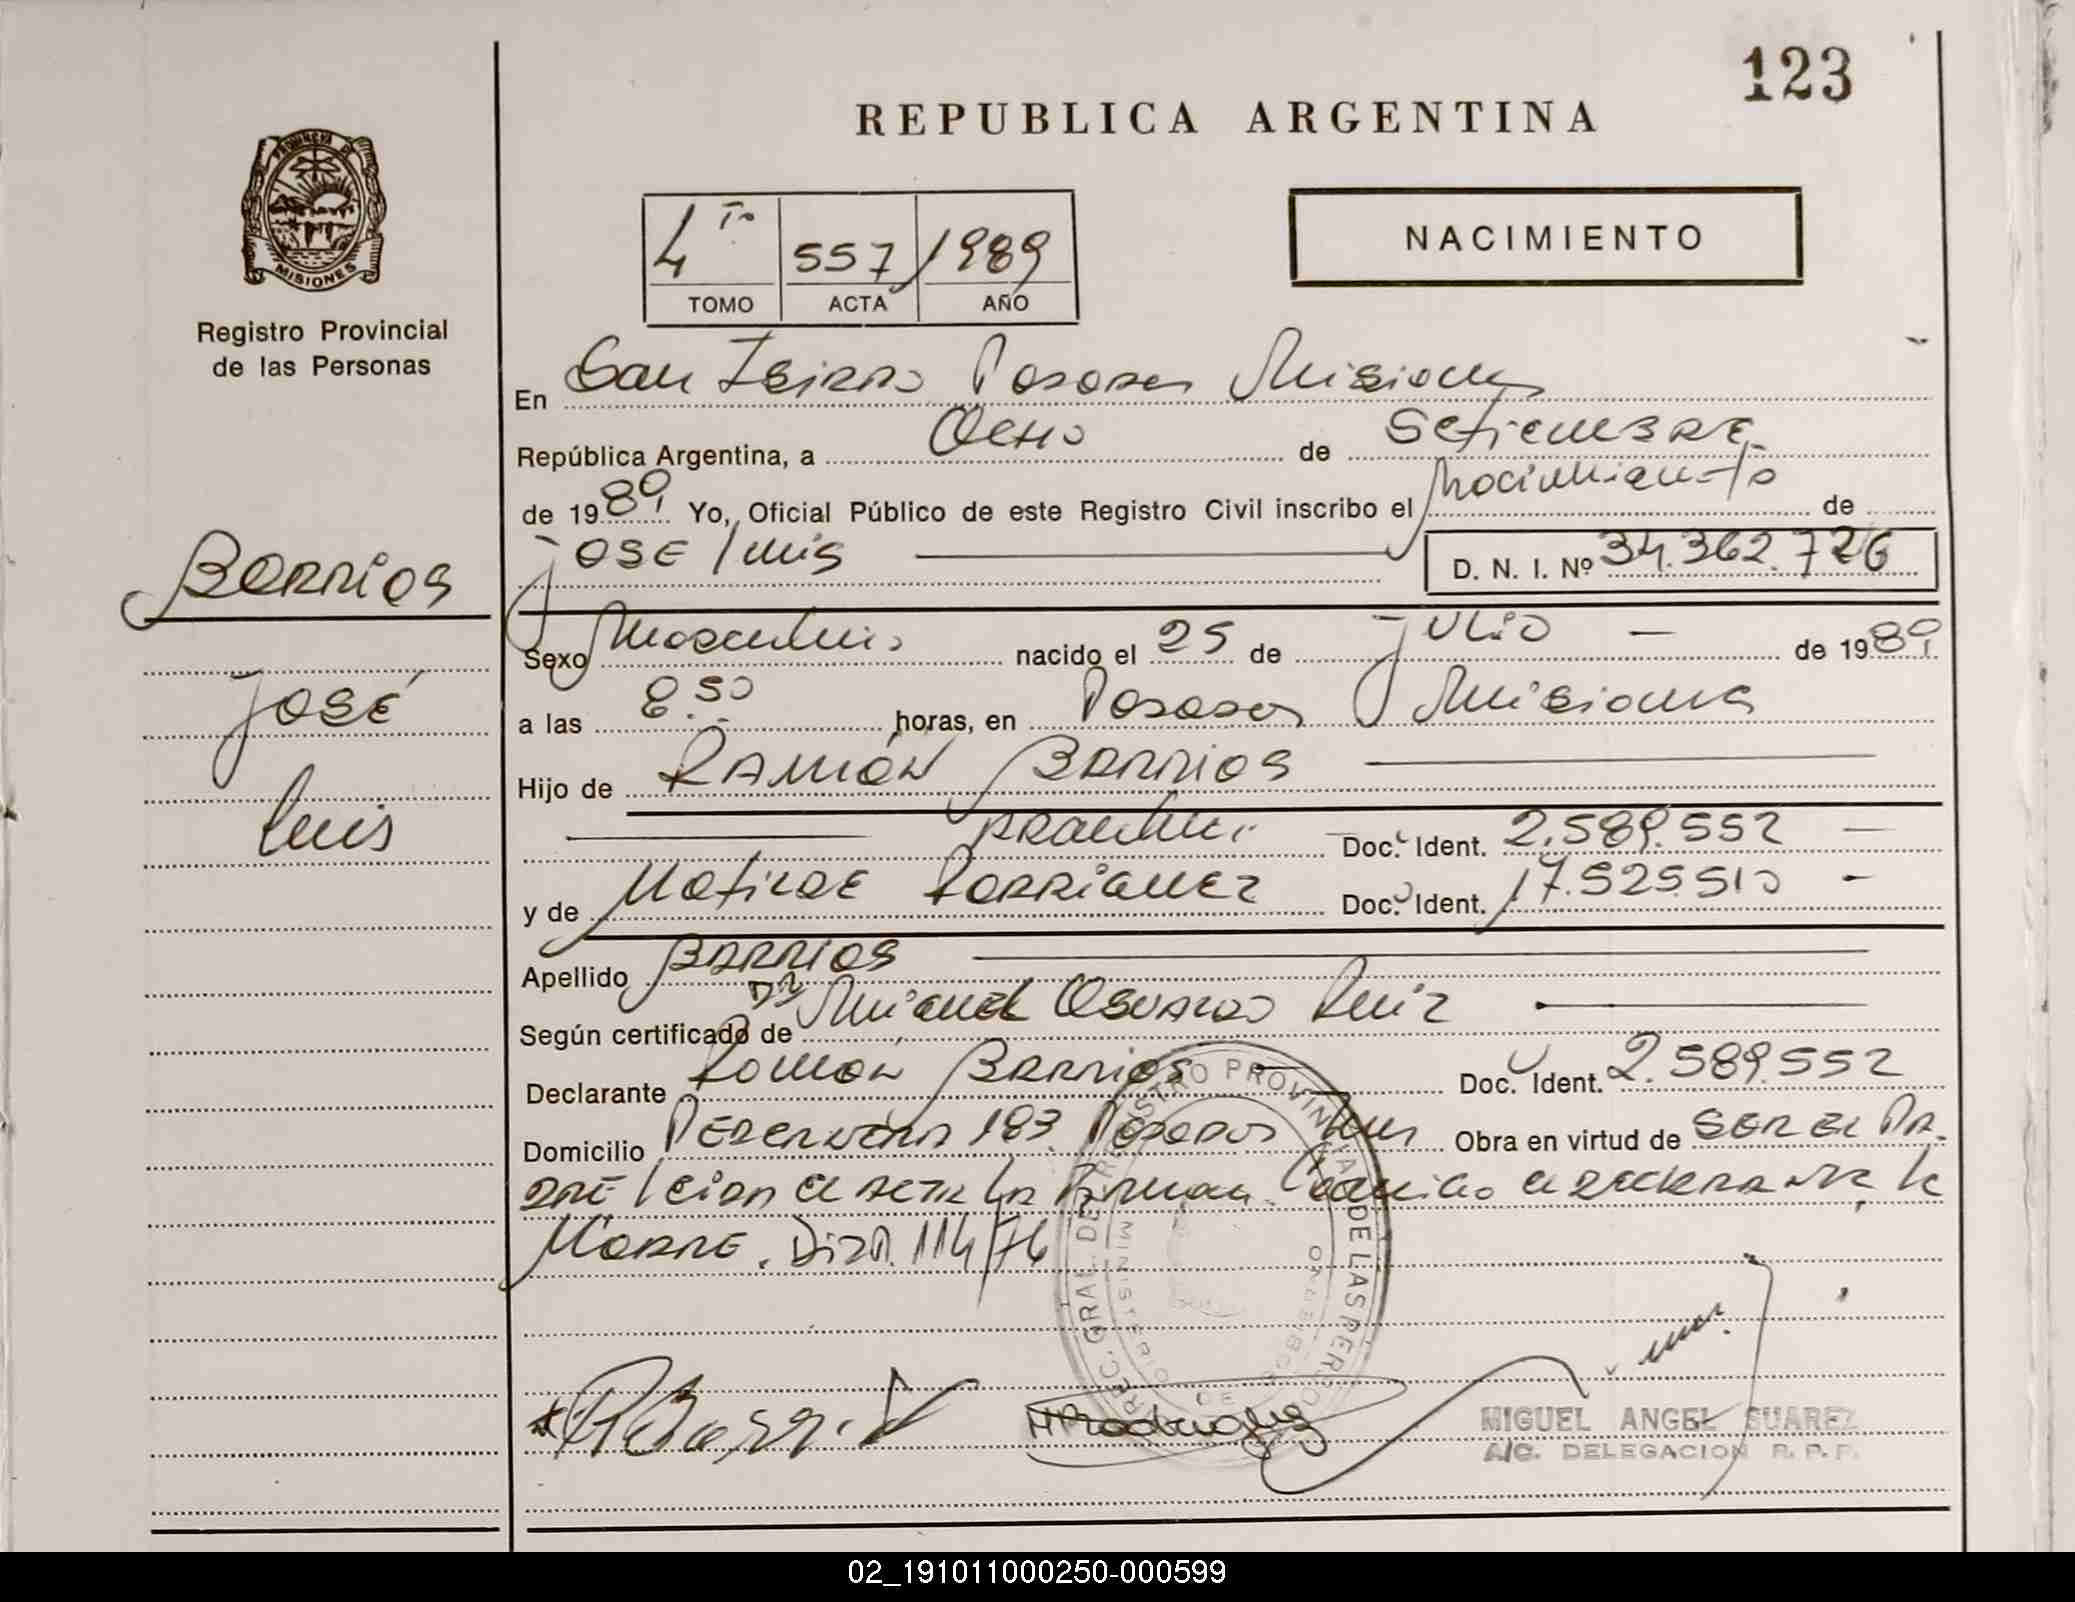 123
REPUBLICA ARGENTINA
PROVINCIA DE
MISIONES
Registro Provincial
de las Personas
4to
557
1989
TOMO
ACTA
AÑO
NACIMIENTO
En San Isidro Posadas Misiones
República Argentina, a Ocho de Setiembre
de 1989 Yo, Oficial Público de este Registro Civil inscribo el Nacimiento de
Jose Luis D. N. I. Nº 34.362.726
Barrios
José
Luis
Sexo Masculino nacido el 25 de Julio de 1989
a las 8.50 horas, en Posadas Misiones
Hijo de Ramón Barrios
Doc. Ident. 2.589.552
y de Matilde Rodriguez Doc. Ident. 17.525.510
Apellido Barrios
Según certificado de Dr Miguel Osvaldo Ruiz
Declarante Ramón Barrios Doc. Ident. 2.589.552
Domicilio 183 Posadas Mnes Obra en virtud de Ser el Pa-
dre Leida el acta la firman Conmigo el declarante, la
Madre. Disp. 114/76
REC. GRAL. DE REGISTRO PROVINCIAL DE LAS PERSONAS
MINISTERIO DE GOBIERNO
R Barrios
M Rodriguez
MIGUEL ANGEL SUAREZ
A/C. DELEGACION R. P. P.
02_191011000250-000599